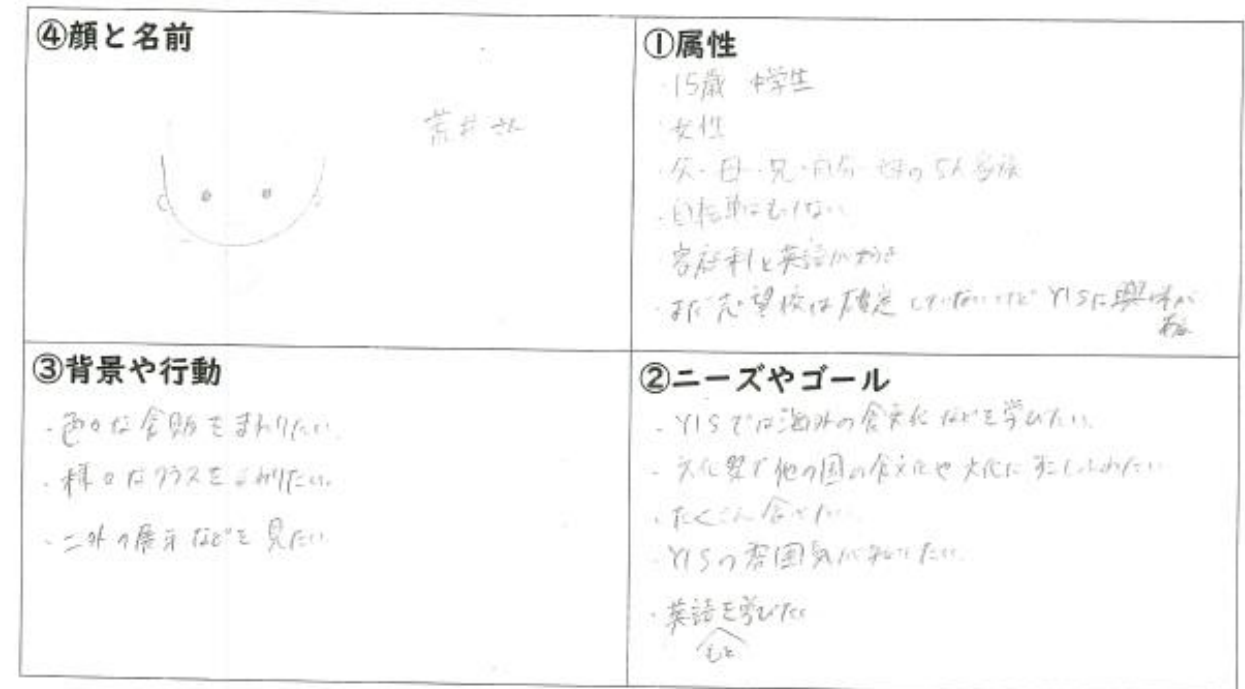 ④顔と名前
荒井さん
①属性
・15歳 中学生
・女性
・父・母・兄・自分・妹の5人家族
・自転車はもってない
・家庭科と英語が好き
・まだ志望校は確定していないけどYISに興味が
ある
③背景や行動
・色々な食販をまわりたい。
・様々なクラスをまわりたい。
・二外の展示などを見たい
②ニーズやゴール
・YISでは海外の食文化などを学びたい。
・文化祭で他の国の食文化や文化に少しふれたい
・たくさん食べたい。
・YISの雰囲気が知りたい。
・英語を学びたい
もっと